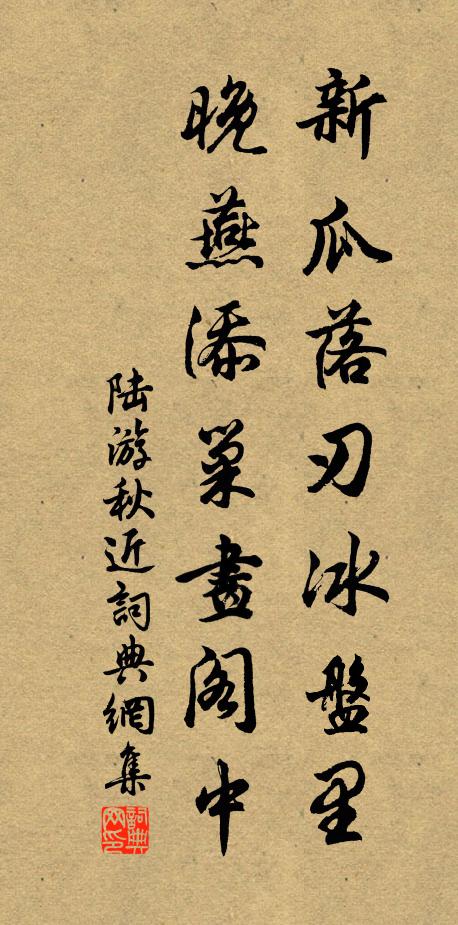 新瓜落刃冰盤里
晚燕添巢畫阁中
陆游秋近詞典網集
詞典网印